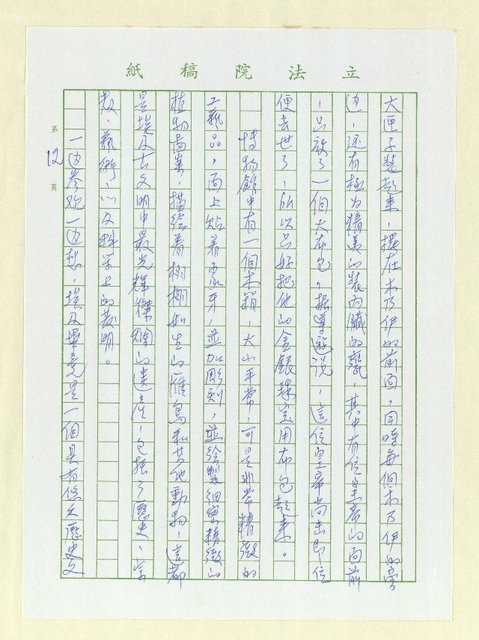 立法院稿紙
大匣子裝起來，擺在木乃伊的前面，同時每個木乃伊的旁
邊，還有極為精美的裝內臟的甕，其中有位皇帝的面前
，只放了一個大布包，據導遊說，這位皇帝尚未即位
便去世了，所以只好把他的金銀珠寶用布包起來。
博物館中有一個木箱，大小平常，可是非常精緻的
工藝品，面上貼著象牙，並加彫刻，並繪製細密精緻的
植物圖案，描繪著栩栩如生的雁鳥和其他動物，這都
是埃及古文明中最光輝燦爛的遺產，包括了歷史、宗
教、藝術、以及科學上的發明。
一邊參觀一邊想，埃及畢竟是一個具有悠久歷史文
第12頁